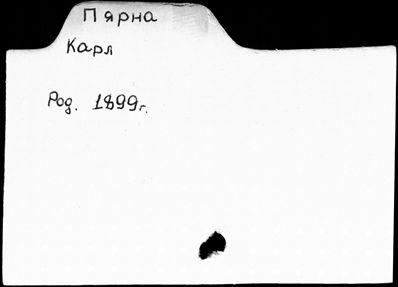 Пярна
Карл
Род. 1899г.